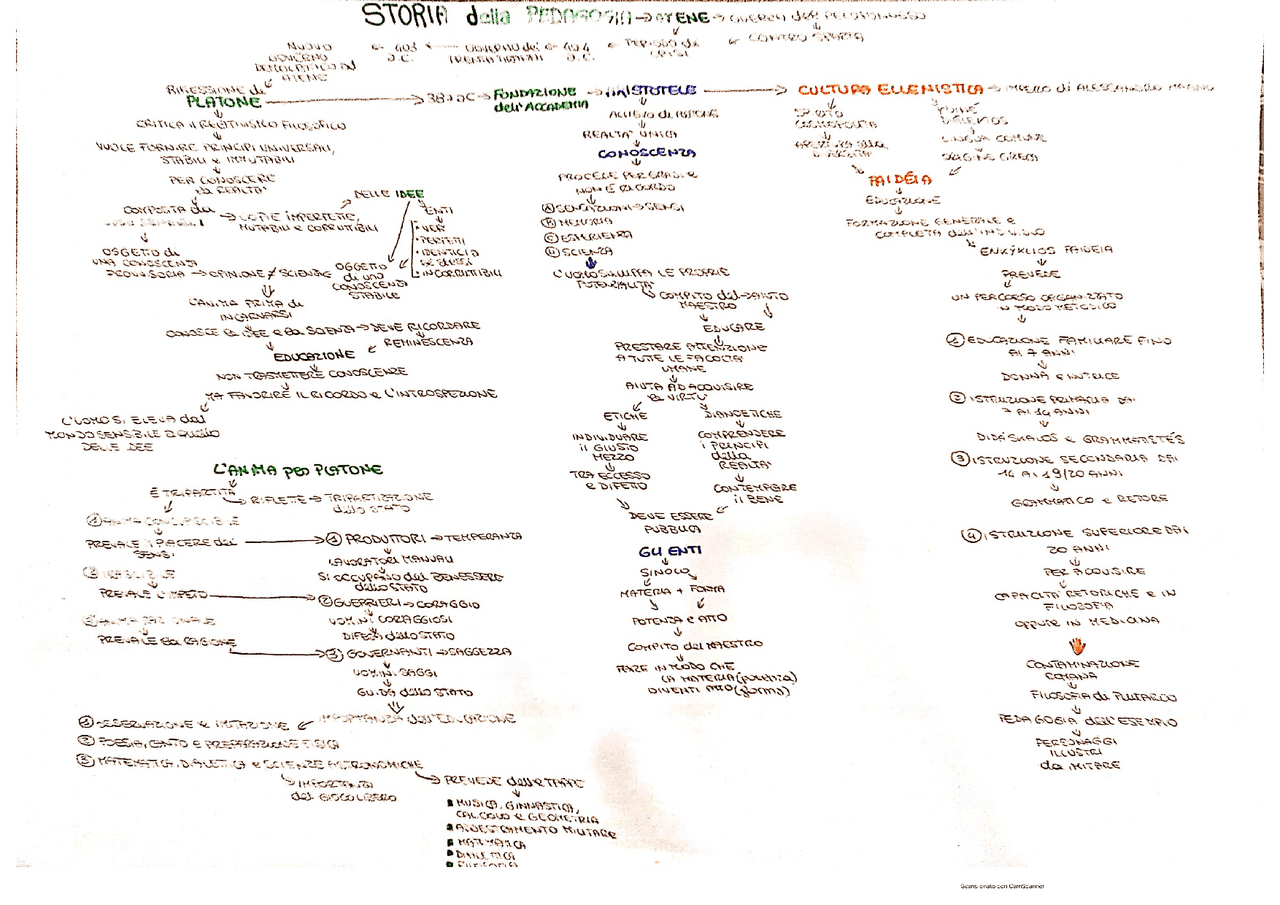 STORIA della PEDAGOGIA → ATENE → GUERRA del PELOPONNESO
CONTRO SPARTA
PERIODO di CRISI
404 a.C.
GOVERNO dei TRENTA TIRANNI
403 a.C.
NUOVO
GOVERNO
DEMOCRATICO ad
ATENE
RIFLESSIONE di
PLATONE → 387 DC → FONDAZIONE
dell'ACCADEMIA → ARISTOTELE → CULTURA ELLENISTICA → IMPERO di ALESSANDRO MAGNO
CRITICA il RELATIVISMO FILOSOFICO
VUOLE FORNIRE PRINCIPI UNIVERSALI,
STABILI e IMMUTABILI
PER CONOSCERE
la REALTÀ
COMPOSTA da
→ COPIE IMPERFETTE,
MUTABILI e CORRUTTIBILI
DELLE IDEE
ENTI
• VERI
• PERFETTI
• IDENTICI a
se stessi
• INCORRUTTIBILI
OGGETTO
di una
CONOSCENZA
STABILE
OGGETTO di
UNA CONOSCENZA
PROVVISORIA → OPINIONE ≠ SCIENZA
L'ANIMA PRIMA di
INCARNARSI
CONOSCE le IDEE e la SCIENZA → DEVE RICORDARE
REMINESCENZA
EDUCAZIONE
NON TRASMETTERE CONOSCENZE
MA FAVORIRE IL RICORDO e L'INTROSPEZIONE
L'UOMO SI ELEVA dal
MONDO SENSIBILE a quello
DELLE IDEE
L'ANIMA per PLATONE
È TRIPARTITA
→ RIFLETTE → TRIPARTIZIONE
dello STATO
① ANIMA CONCUPISCIBILE
PREVALE il PIACERE dei
SENSI
② IRASCIBILE
PREVALE L'IMPETO
③ ANIMA RAZIONALE
PREVALE la RAGIONE
① PRODUTTORI → TEMPERANZA
LAVORATORI MANUALI
SI OCCUPANO del BENESSERE
dello STATO
② GUERRIERI → CORAGGIO
UOMINI CORAGGIOSI
DIFESA dello STATO
③ GOVERNANTI → SAGGEZZA
UOMINI SAGGI
GUIDA dello STATO
IMPORTANZA dell'EDUCAZIONE
① OSSERVAZIONE e IMITAZIONE
② POESIA, CANTO e PREPARAZIONE FISICA
③ MATEMATICA, DIALETTICA e SCIENZE ASTRONOMICHE
IMPORTANZA
del GIOCO LIBERO
PREVEDE delle TAPPE
▪ MUSICA, GINNASTICA,
CALCOLO e GEOMETRIA
▪ ADDESTRAMENTO MILITARE
▪ MATEMATICA
▪ DIALETTICA
▪ FILOSOFIA
ALLIEVO di PLATONE
REALTÀ UNICA
CONOSCENZA
PROCEDE PER GRADI e
NON È RICORDO
Ⓐ SENSAZIONI → SENSI
Ⓑ MEMORIA
Ⓒ ESPERIENZA
Ⓓ SCIENZA
L'UOMO SVILUPPA LE PROPRIE
POTENZIALITÀ
COMPITO del → AIUTO
MAESTRO
EDUCARE
PRESTARE ATTENZIONE
A TUTTE LE FACOLTÀ
UMANE
AIUTA AD ACQUISIRE
la VIRTÙ
ETICHE
INDIVIDUARE
il GIUSTO
MEZZO
TRA ECCESSO
e DIFETTO
DIANOETICHE
COMPRENDERE
i PRINCIPI
della
REALTÀ
CONTEMPLARE
il BENE
DEVE ESSERE
PUBBLICA
GLI ENTI
SINOLO
MATERIA + FORMA
POTENZA e ATTO
COMPITO del MAESTRO
FARE IN MODO CHE
LA MATERIA (potenza)
DIVENTI ATTO (forma)
SPIRITO
COSMOPOLITA
APERTURA alla
DIVERSITÀ
KOINÉ
DIÀLEKTOS
LINGUA COMUNE
ORIGINE GRECA
PAIDÉIA
EDUCAZIONE
FORMAZIONE GENERALE e
COMPLETA dell'INDIVIDUO
ENKÝKLIOS PAIDEIA
PREVEDE
UN PERCORSO ORGANIZZATO
in MODO METODICO
① EDUCAZIONE FAMILIARE FINO
AI 7 ANNI
DONNA e NUTRICE
② ISTRUZIONE PRIMARIA DAI
7 AI 14 ANNI
DIDÁSKALOS e GRAMMATISTÉS
③ ISTRUZIONE SECONDARIA DAI
14 AI 19/20 ANNI
GRAMMATICO e RETORE
④ ISTRUZIONE SUPERIORE DAI
20 ANNI
PER ACQUISIRE
CAPACITÀ RETORICHE e IN
FILOSOFIA
OPPURE IN MEDICINA
CONTAMINAZIONE
ROMANA
FILOSOFIA di PLUTARCO
PEDAGOGIA dell'ESEMPIO
PERSONAGGI
ILLUSTRI
da IMITARE
Scansionato con CamScanner